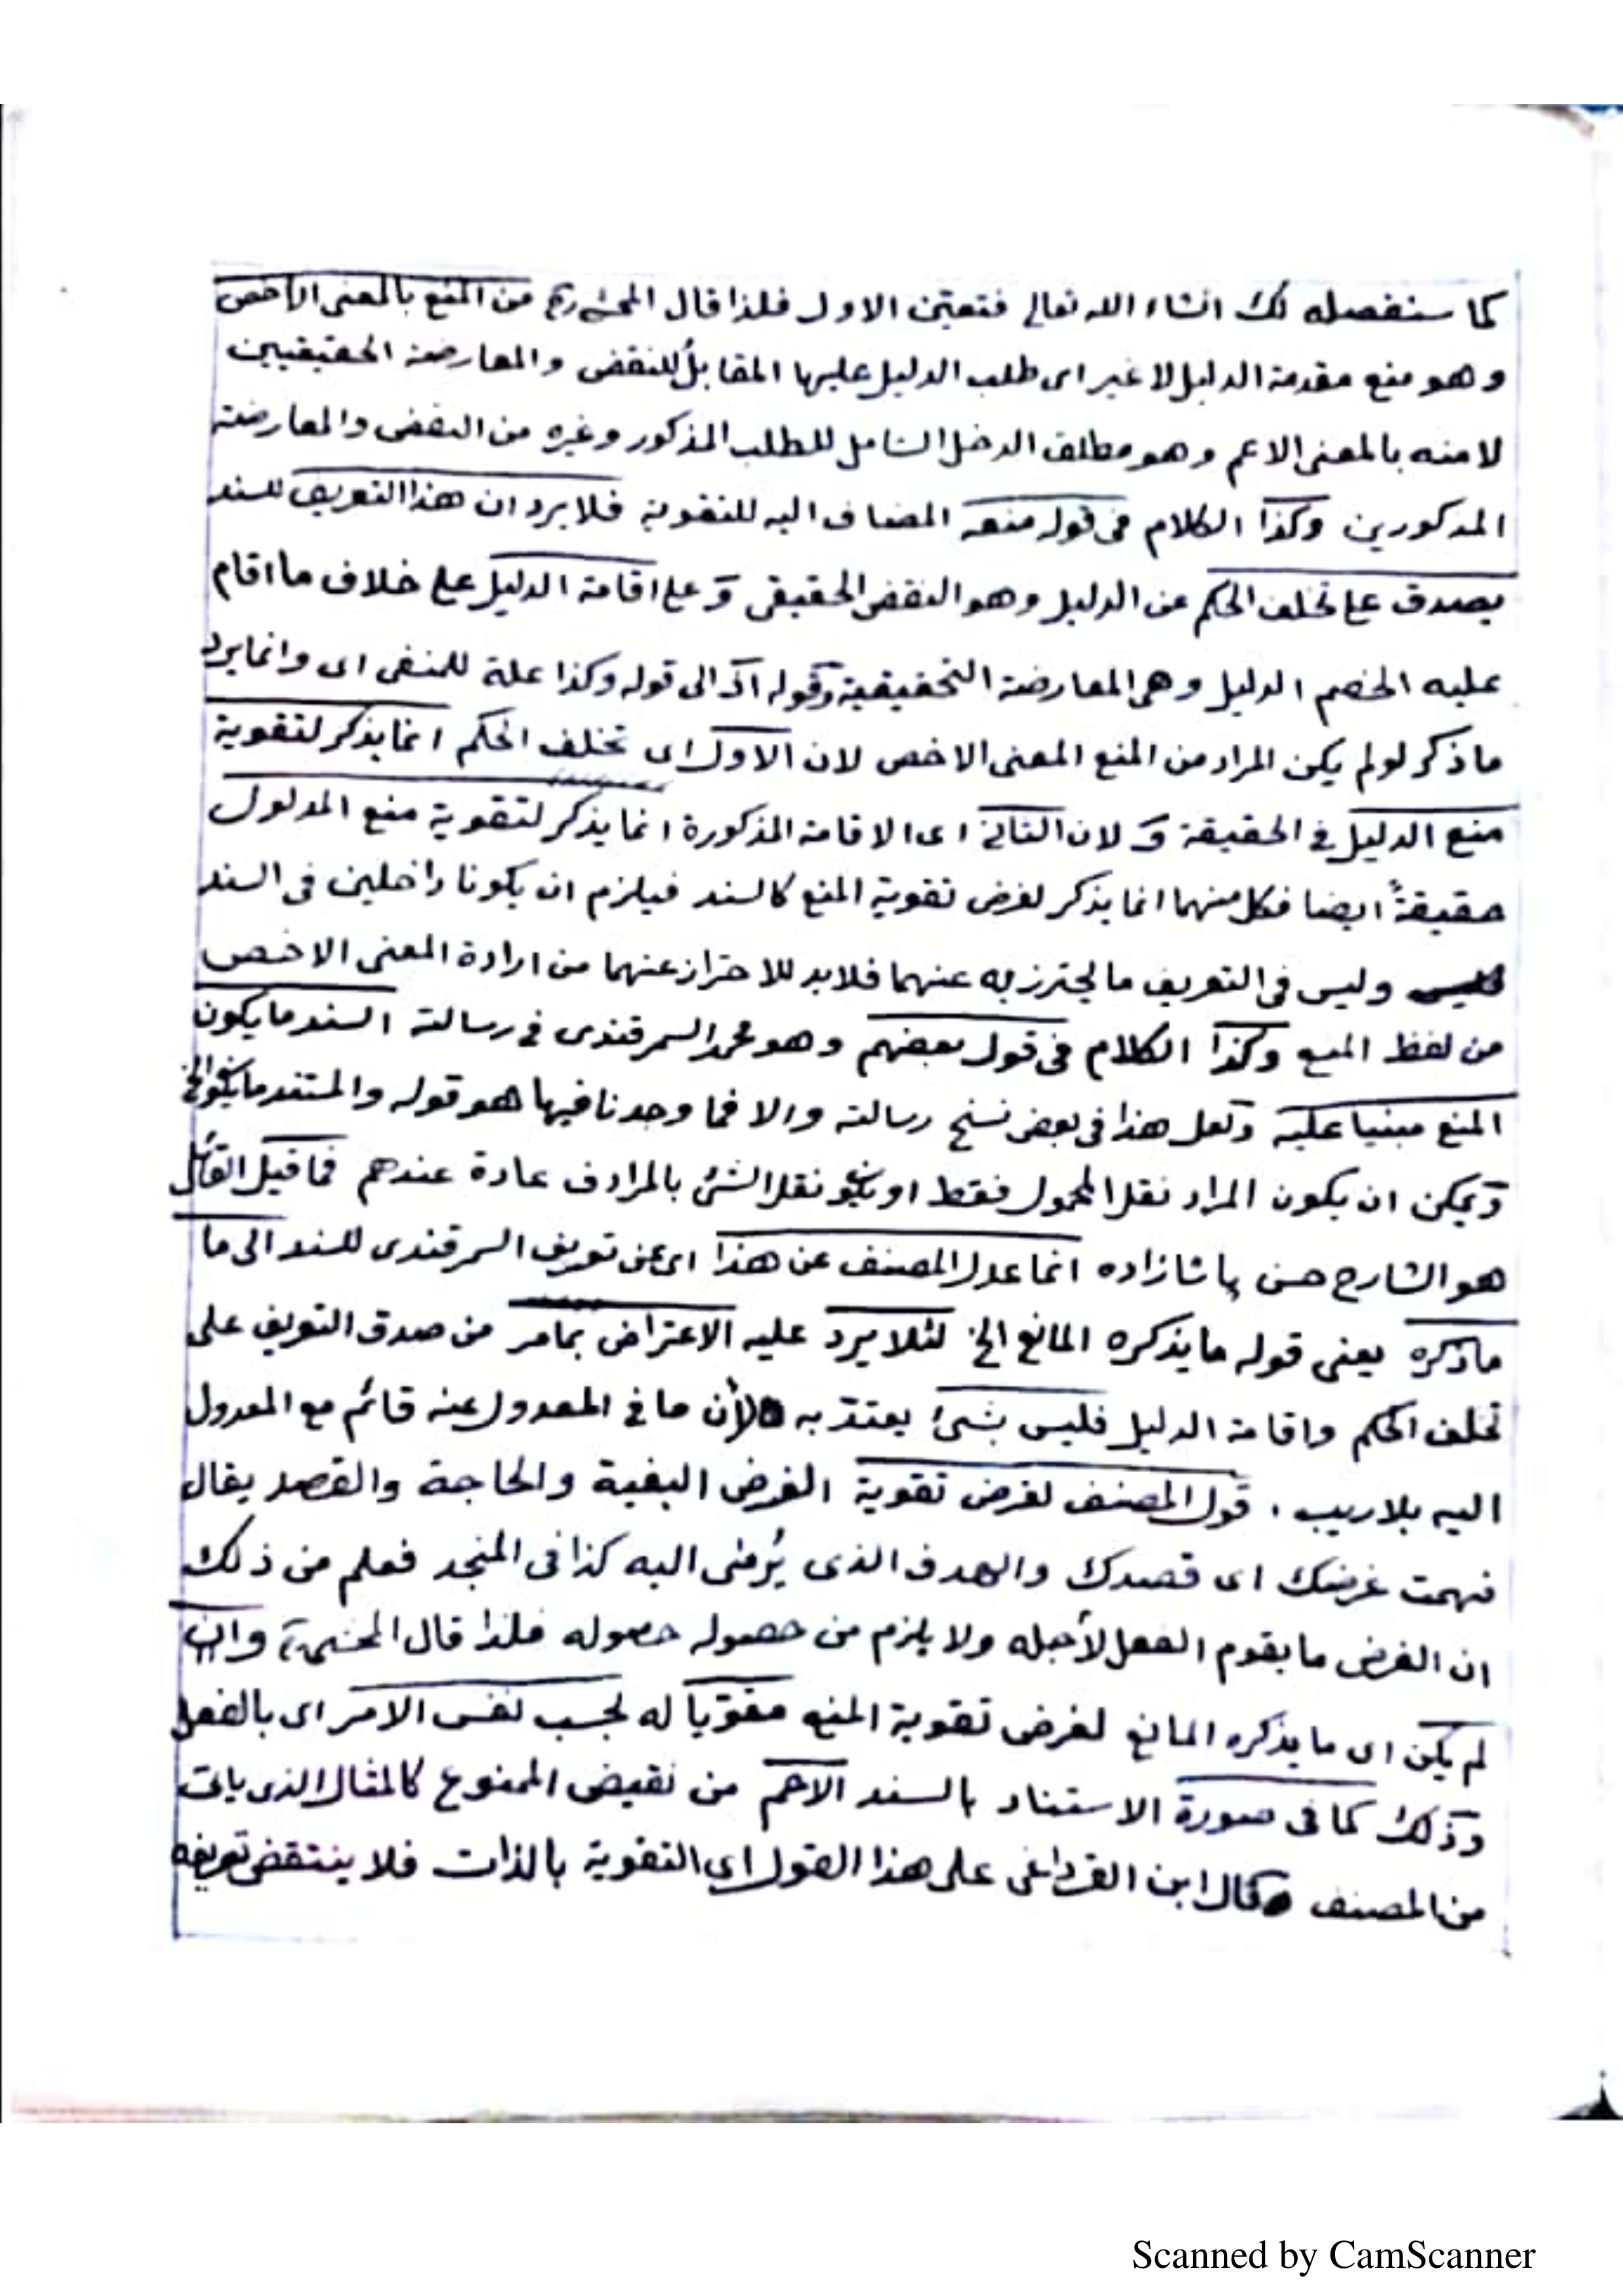 كما ستفصله لك انشاء الله تعالى فتعين الاول فلذا قال المحشى من المنع بالمعنى الأخص
وهو منع مقدمة الدليل لا غير اى طلب الدليل عليها المقابل للنقض والمعارضة الحقيقيين
لا منه بالمعنى الاعم وهو مطلق الدخل الشامل للطلب المذكور وغيره من النقض والمعارضة
المذكورين وكذا الكلام فى قوله منعه المضاف اليه للتقوية فلا يرد ان هذا التعريف للسند
يصدق على تخلف الحكم عن الدليل وهو النقض الحقيقى وَ على اقامة الدليل على خلاف ما اقام
عليه الخصم الدليل وهى المعارضة التحقيقية وقوله اذ الى قوله وكذا علة للمنفى اى وانما يرد
ما ذكر لو لم يكن المراد من المنع المعنى الاخص لان الاول اى تخلف الحكم انما يذكر لتقوية
منع الدليل فى الحقيقة وَ لان الثانى اى الاقامة المذكورة انما يذكر لتقوية منع المدلول
حقيقةً ايضا فكل منهما انما يذكر لغرض تقوية المنع كالسند فيلزم ان يكونا داخلين فى السند
وليس فى التعريف ما يحترز به عنهما فلا بد للاحتراز عنهما من ارادة المعنى الاخص
من لفظ المنع وكذا الكلام فى قول بعضهم وهو محمد السمرقندى فى رسالته السند ما يكون
المنع مبنيا عليه ولعل هذا فى بعض نسخ رسالته والا فما وجدنا فيها هو قوله والمستند ما يكون الخ
وَيمكن ان يكون المراد نقل المحمول فقط او يكون نقل الشئ بالمرادف عادة عندهم فما قيل القائل
هو الشارح حسن پاشازاده انما عدل المصنف عن هذا اى عن تعريف السمرقندى للسند الى ما
ماذكره يعنى قوله ما يذكره المانع الخ لئلا يرد عليه الاعتراض بمامر من صدق التعريف على
تخلف الحكم واقامة الدليل فليس بشئ يعتدّ به لأن ما فى المعدول عنه قائم مع المعدول
اليه بلا ريب . قول المصنف لغرض تقوية الغرض البغية والحاجة والقصد يقال
فهمت غرضك اى قصدك والهدف الذى يُرمٰى اليه كذا فى المنجد فعلم من ذلك
ان الغرض ما يقوم الفعل لأجله ولا يلزم من حصوله حصوله فلذا قال المحشى وان
لم يكن اى ما يذكره المانع لغرض تقوية المنع مقوّياً له بحسب نفس الامر اى بالفعل
وَذلك كما فى صورة الاستناد بالسند الاعم من نقيض الممنوع كالمثال الذى يأتى
من المصنف وقال ابن القرداغى على هذا القول اى التقوية بالذات فلا ينتقض تعريفه
Scanned by CamScanner